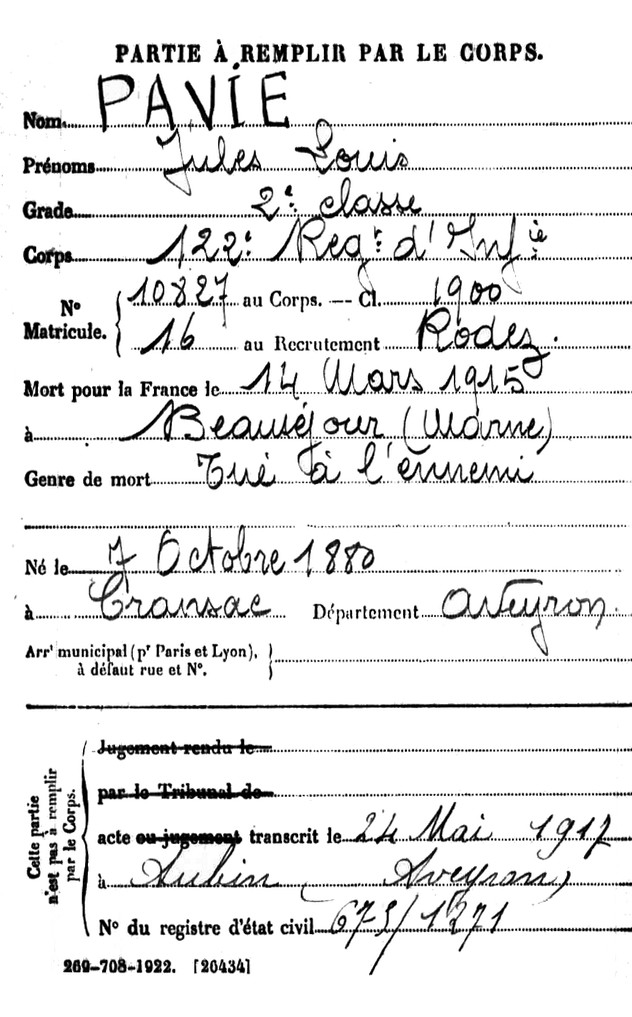 PARTIE À REMPLIR PAR LE CORPS.
Nom PAVIE
Prénoms Jules Louis
Grade 2e classe
Corps 122e Regt d'Infie
No Matricule. 10827 au Corps. — Cl. 1900
16 au Recrutement Rodez.
Mort pour la France le 14 Mars 1915
à Beauséjour (Marne)
Genre de mort Tué à l'ennemi
Né le 7 Octobre 1880
à Cransac Département Aveyron.
Arrt municipal (pr Paris et Lyon),
à défaut rue et No.
Cette partie n'est pas à remplir par le Corps.
Jugement rendu le
par le Tribunal de
acte ou jugement transcrit le 24 Mai 1917
à Aubin (Aveyron)
No du registre d'état civil 675/1271
269-708-1922. [26434]